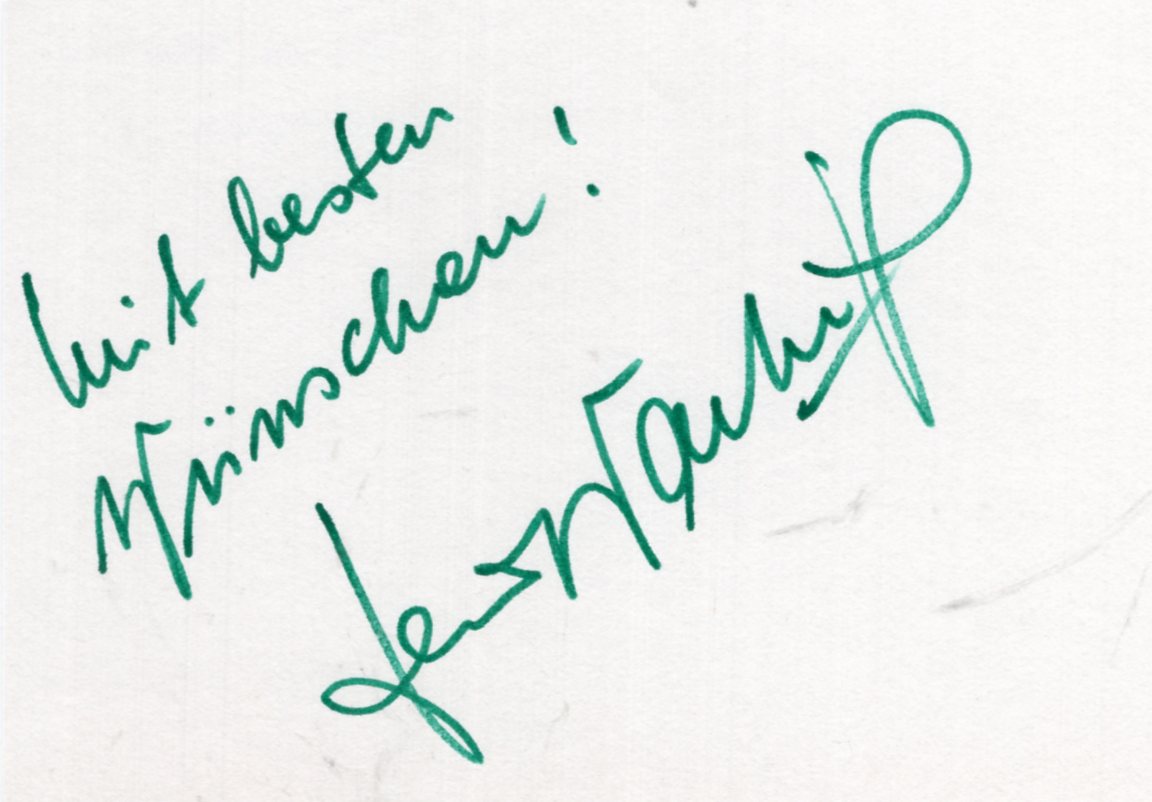 Mit besten
Wünschen!
Jens